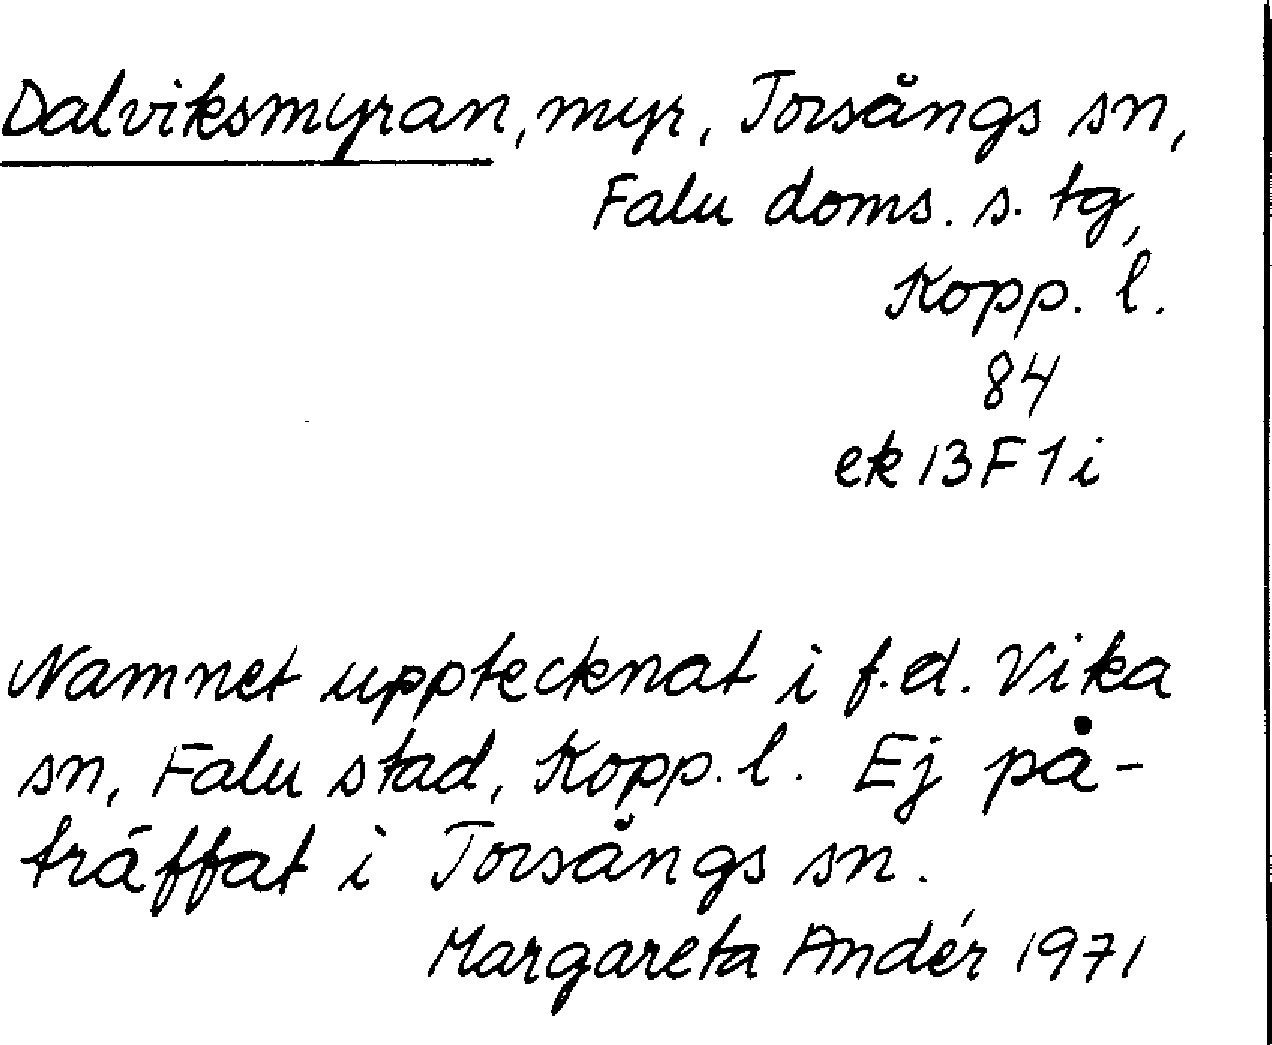 Dalviksmyran, myr, Torsångs sn,
Falu doms. s. tg,
Kopp. l.
84
ek 13 F 1 i
Namnet upptecknat i f.d. Vika
sn, Falu stad, Kopp. l. Ej på-
träffat i Torsångs sn.
Margareta Andér 1971